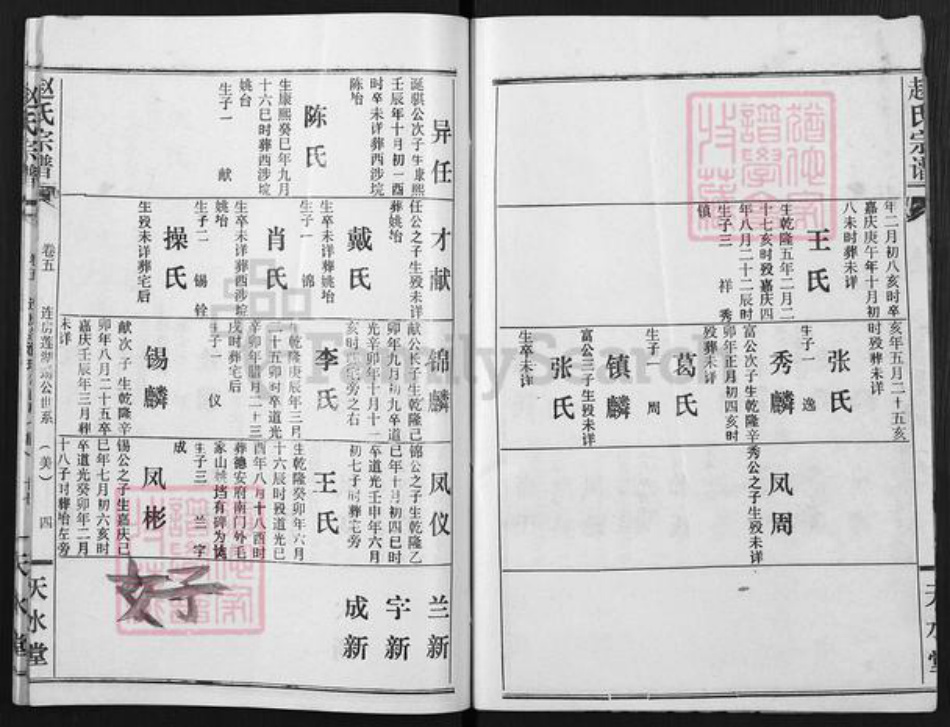 赵氏宗谱
天水堂
年二月初八亥时卒
嘉庆庚午年十月初
八未时葬未详
王氏
生乾隆五年二月二
十七亥时殁嘉庆四
年八月二十二辰时
生子三 祥 秀
镇
亥年五月二十五亥
时殁葬未详
张氏
生子一 逸
秀麟
富公次子生乾隆辛
卯年正月初四亥时
殁葬未详
葛氏
生子一 周
镇麟
富公三子生殁未详
张氏
生卒未详
凤周
秀公之子生殁未详
异任
诞骐公次子生康熙
壬辰年十月初一酉
时卒未详葬西涉垸
陈坮
陈氏
生康熙癸巳年九月
十六巳时葬西涉垸
姚台
生子一 献
才献
任公之子生殁未详
葬姚坮
戴氏
生卒未详葬姚坮
生子一 锦
肖氏
生卒未详葬西涉垸
姚坮
生子二 锡 铨
操氏
生殁未详葬宅后
锦麟
献公长子生乾隆己
卯年九月初九卒道
光辛卯年十月十一
亥时葬宅旁之右
李氏
生乾隆庚辰年三月
二十五卯时卒道光
辛卯年腊月二十三
戌时葬宅后
生子一 仪
锡麟
献次子生乾隆辛
卯年八月二十五卒
嘉庆壬辰年三月葬
未详
凤仪
锦公之子生乾隆乙
巳年十月初四巳时
卒道光壬申年六月
初七子时葬宅旁
王氏
生乾隆癸卯年六月
十六辰时殁道光己
酉年八月十八酉时
葬德安府南门外毛
家山 垱有碑为誌
生子三 兰 字
成
凤彬
锡公之子生嘉庆己
巳年七月初六亥时
卒道光癸卯年二月
十八子时葬坮左旁
兰新
字新
成新
好
赵氏宗谱
卷五
连房莲湖瑞公世系(美)
四
天水堂
FamilySearch